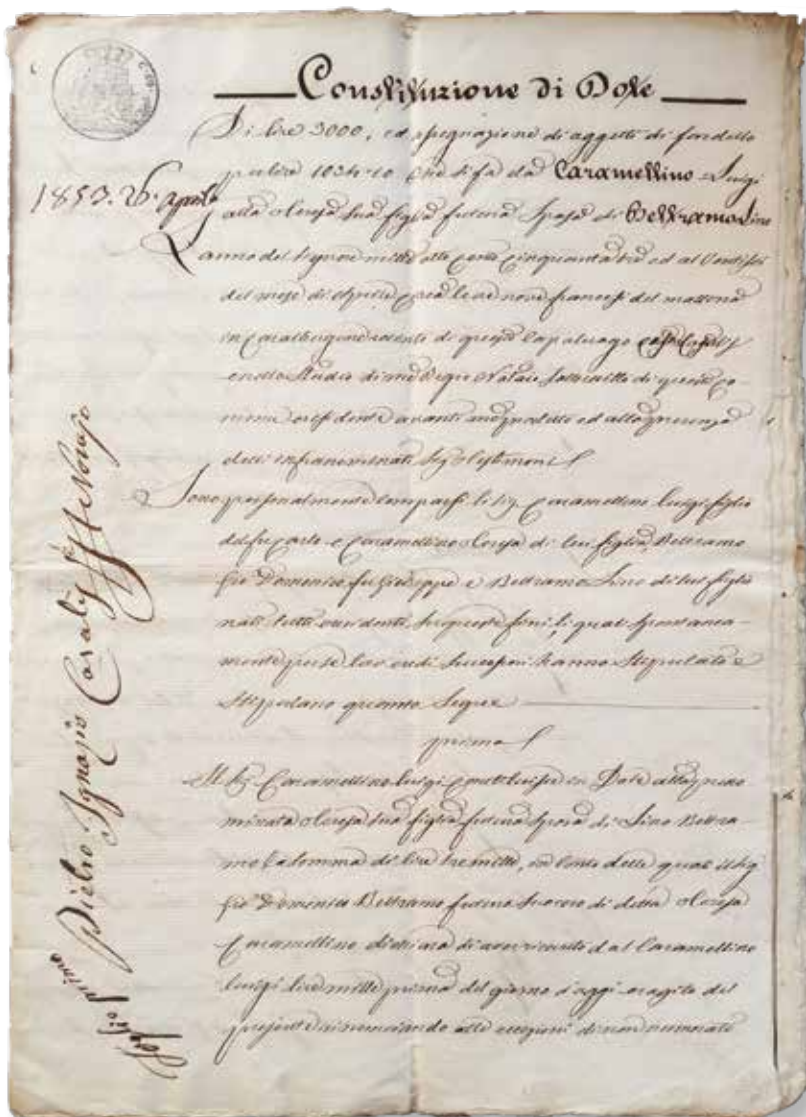 Constituzione di Dote
Di lire 3000, ed assegnazione di oggetti di fardello
per lire 1034.10 che si fa da Caramellino Luigi
1853. 26. aprile
alla Teresa sua figlia futura sposa di Beltramo Lino
L'anno del Signore mille otto cento cinquanta tre ed al Ventisei
del mese di Aprile circa le ore nove francesi del mattino
in
e nello Studio di me Regio Notaio sottoscritto di questo co-
mune residente avanti me predetto ed alla presenza
delli infranominati Sig. testimoni
Sono personalmente comparsi li Sig. Caramellino Luigi figlio
del fu Carlo e Caramellino Teresa di lui figlia, Beltramo
Gio Domenico fu Giuseppe e Beltramo Lino di lui figlio
nati tutti e residenti su queste fini, li quali spontanea-
mente per se loro eredi successori hanno stipulato e
stipulano quanto segue
primo
Il Sig. Caramellino Luigi constituisce in Dote alla prno
minata Teresa sua figlia futura sposa di Lino Beltra-
mo la somma di lire tre mille, in conto delle quali il Sig
Gio Domenico Beltramo futuro suocero di detta Teresa
Caramellino dichiara di aver ricevuto dal Caramellino
Luigi lire mille prima del giorno d'oggi e rogito del
presente rinunciando alle eccezioni di non numerato
foglio primo Pietro Ignazio Casalis Notajo